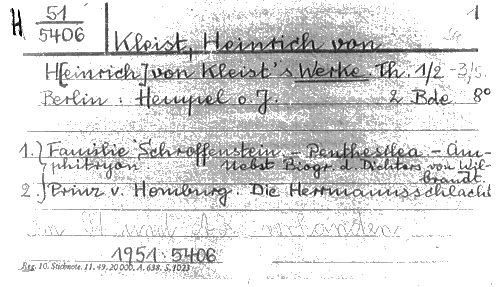 H 51/5406
1
Kleist, Heinrich von
H[einrich] von Kleist's Werke. Th. 1/2 -3/5.
Berlin: Hempel o. J. 2 Bde 8º
1.) Familie Schroffenstein - Penthesilea - Am-
phitryon Nebst Biogr. d. Dichters von Wil-
brandt.
2.) Prinz v. Homburg. Die Herrmannsschlacht
In H und
1951:5406
Reg. 10. Stichnote. 11. 49. 20 000. A. 638. S. 1023